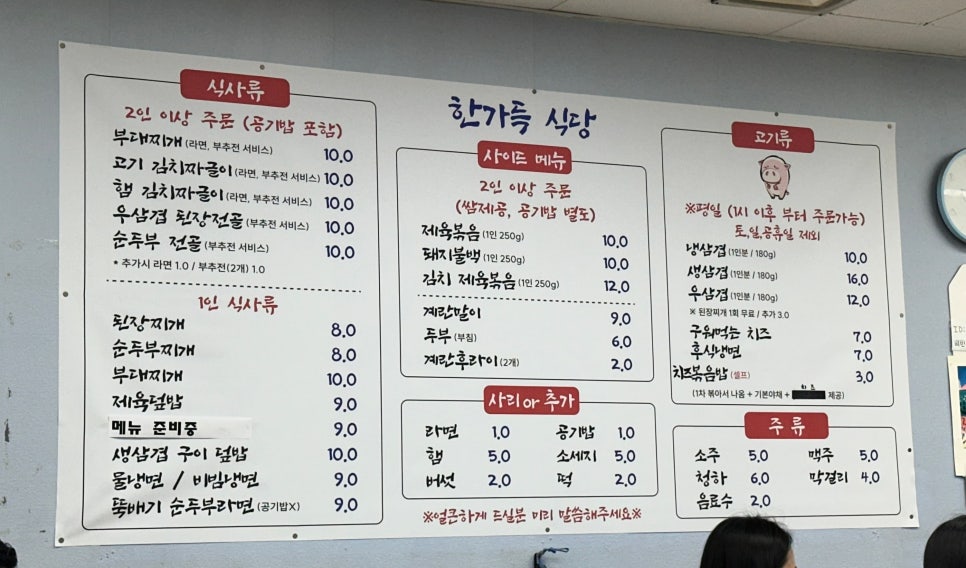 한가득 식당
식사류
2인 이상 주문 (공기밥 포함)
부대찌개 (라면, 부추전 서비스) 10.0
고기 김치짜글이 (라면, 부추전 서비스) 10.0
햄 김치짜글이 (라면, 부추전 서비스) 10.0
우삼겹 된장전골 (부추전 서비스) 10.0
순두부 전골 (부추전 서비스) 10.0
* 추가시 라면 1.0 / 부추전(2개) 1.0
1인 식사류
된장찌개 8.0
순두부찌개 8.0
부대찌개 10.0
제육덮밥 9.0
메뉴 준비중 9.0
생삼겹 구이 덮밥 10.0
물냉면 / 비빔냉면 9.0
뚝배기 순두부라면 (공기밥X) 9.0
사이드 메뉴
2인 이상 주문
(쌈제공, 공기밥 별도)
제육볶음 (1인 250g) 10.0
돼지불백 (1인 250g) 10.0
김치 제육볶음 (1인 250g) 12.0
계란말이 9.0
두부 (부침) 6.0
계란후라이 (2개) 2.0
사리 or 추가
라면 1.0 공기밥 1.0
햄 5.0 소세지 5.0
버섯 2.0 떡 2.0
※얼큰하게 드실분 미리 말씀해주세요※
고기류
※평일 (1시 이후 부터 주문가능)
토,일,공휴일 제외
냉삼겹 (1인분 / 180g) 10.0
생삼겹 (1인분 / 180g) 16.0
우삼겹 (1인분 / 180g) 12.0
※ 된장찌개 1회 무료 / 추가 3.0
구워먹는 치즈 7.0
후식냉면 7.0
치즈볶음밥 (셀프) 3.0
(1차 볶아서 나옴 + 기본야채 + 치즈 제공)
주류
소주 5.0 맥주 5.0
청하 6.0 막걸리 4.0
음료수 2.0
ID: